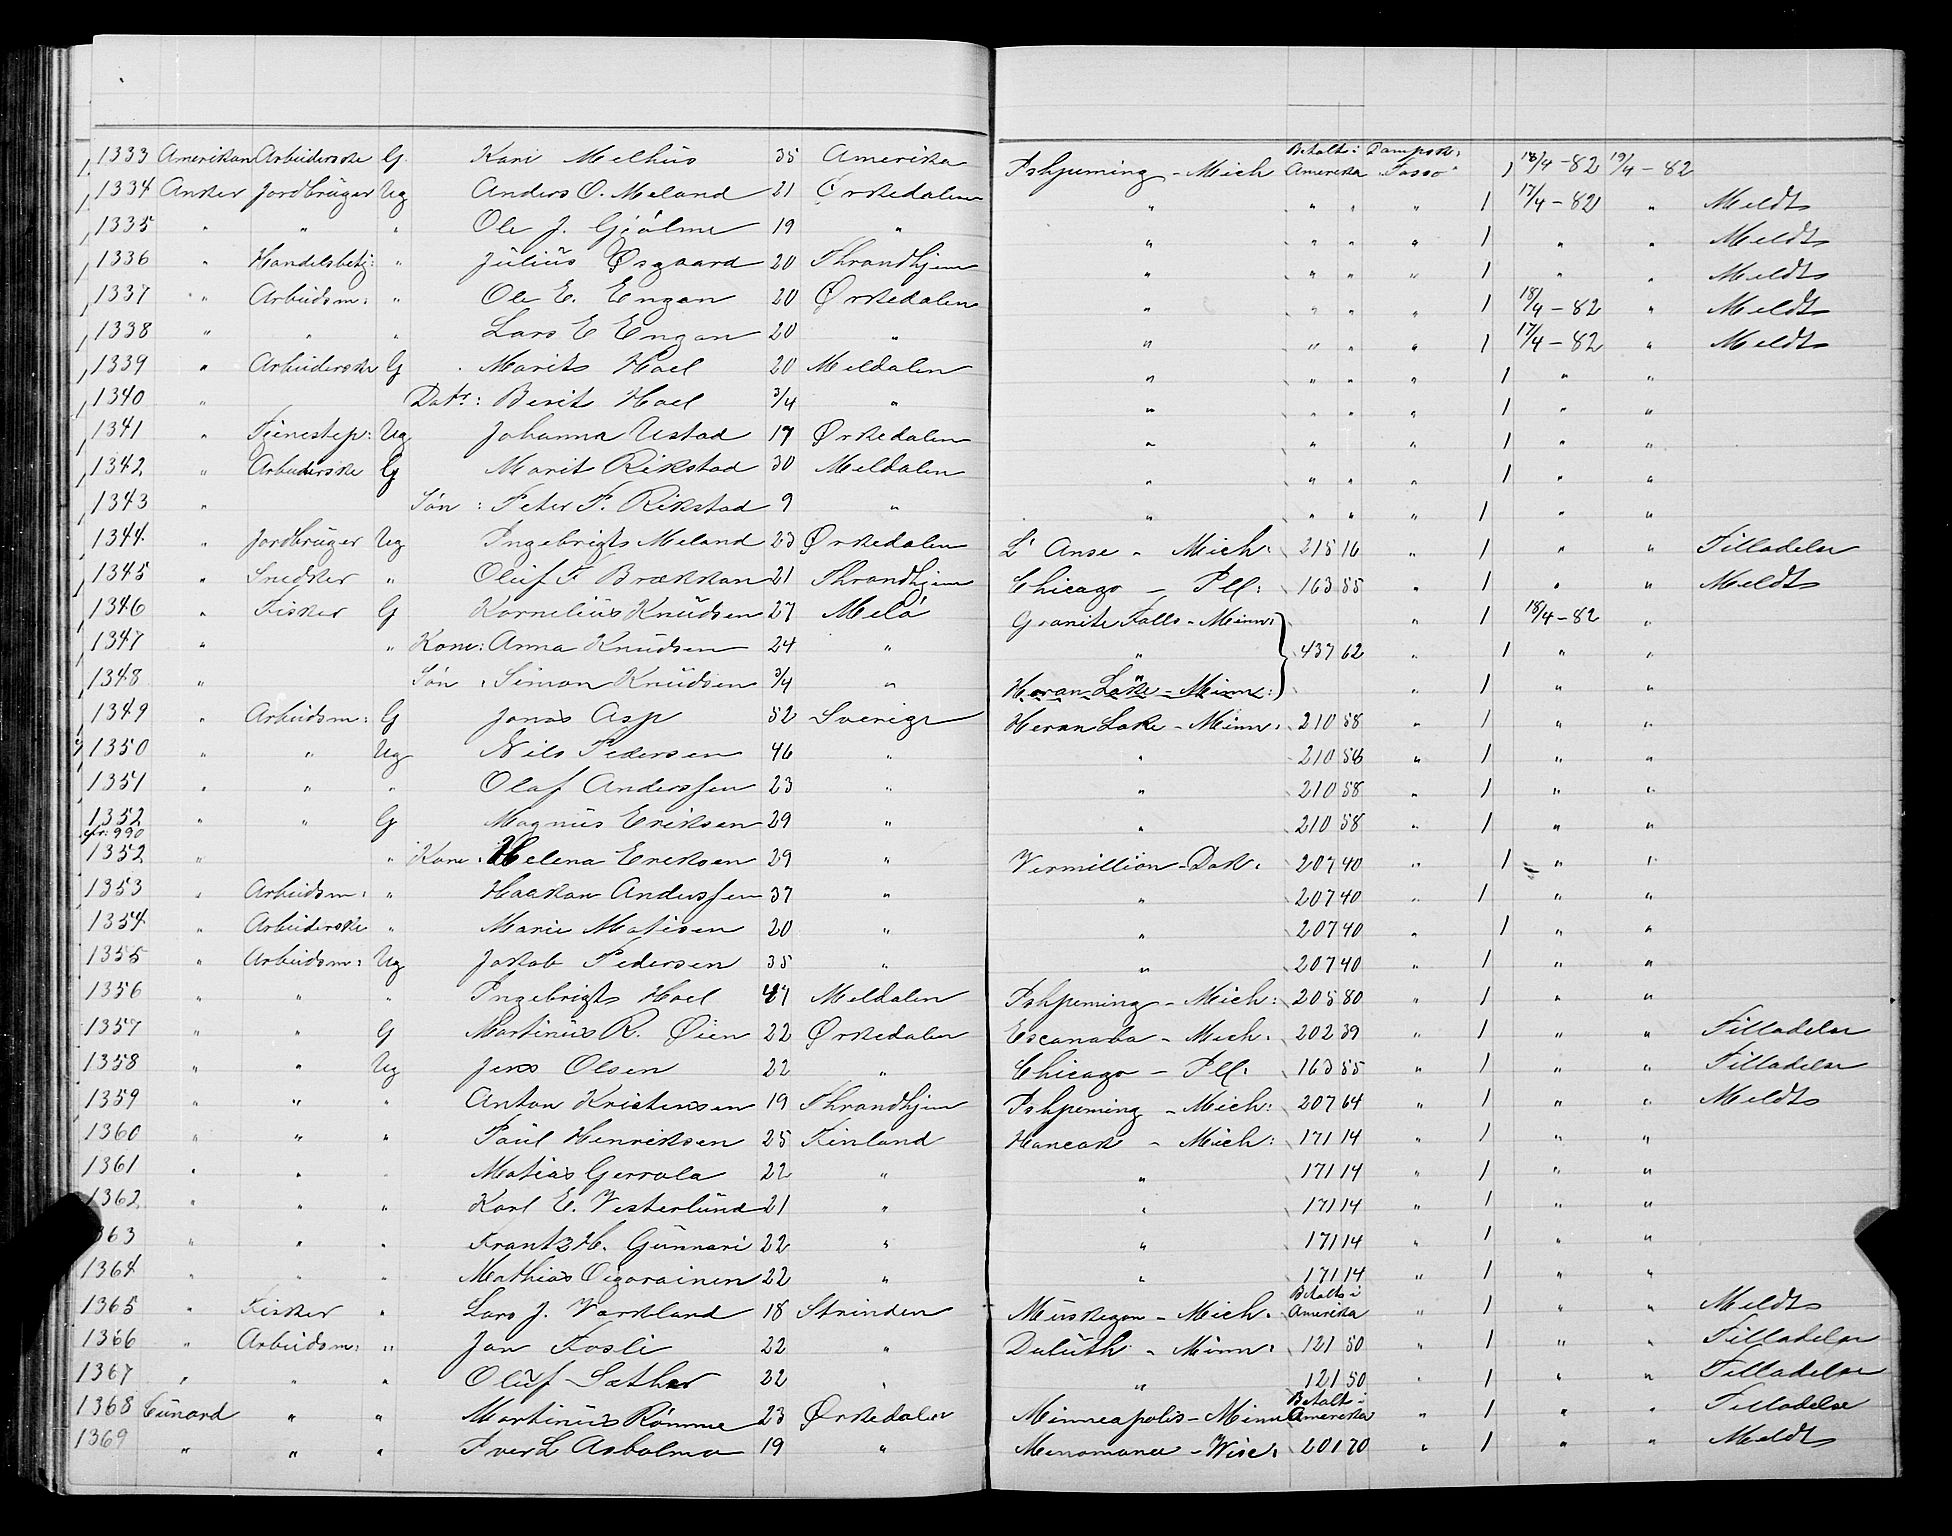 1333 Amerikan Arbeiderske G. Kari Melhus 35 Amerika Ishpeming - Mich Betalt i Amerika Dampsk: Tasso 1 18/4 - 82 19/4 - 82
1334 Anker Jordbruger Ug Anders O. Meland 21 Ørkedalen " " " " 1 17/4 - 82 " Meldt
1335 " " " Ole J. Gjölme 19 " " " " " 1 " " Meldt
1336 " Handelsbetj: " Julius Øsgaard 20 Throndhjem " " " " 1 " " Meldt
1337 " Arbeidsm: " Ole E. Engan 20 Ørkedalen " " " " 1 18/4 - 82 " Meldt
1338 " " " Lars E Engan 20 " " " " " 1 17/4 - 82 " Meldt
1339 " Arbeiderske G Marit Hoel 20 Meldalen " " " " 1 " "
1340 " Datr: Berit Hoel 3/4 " " " " " 1 " "
1341 " Tjenestep: Ug Johanna Ustad 17 Ørkedalen " " " " 1 " "
1342 " Arbeiderske G Marit Rikstad 30 Meldalen " " " " 1 " "
1343 " Søn: Peter F. Rikstad 9 " " " " " 1 " "
1344 " Jordbruger Ug Ingebrigt Meland 23 Ørkedalen L' Anse - Mich: 215 16 " 1 " " Tilladelse
1345 " Snedker " Oluf F Brækkan 21 Throndhjem Chicago - Ill: 163 55 " 1 " " Meldt
1346 " Fisker G Kornelius Knudsen 27 Melö Granite Falls - Minn: " 1 18/4 - 82 "
1347 " " Kone: Anna Knudsen 24 " " 437 62 " 1 " "
1348 " Søn " Simon Knudsen 3/4 " Heran Lake - Minn: " 1 " "
1349 " Arbeidsm: G Jonas Asp 52 Sverige Heran Lake - Minn: 210 58 " 1 " "
1350 " " Ug Nils Pedersen 46 " " 210 58 " 1 " "
1351 " " " Olaf Anderssen 23 " " 210 58 " 1 " "
1352 " " G Magnus Eriksen 29 " " 210 58 " 1 " "
cfr. 990
1352 " " Kone: Helena Eriksen 29 " Vermillion - Dak: 207 40 " 1 " "
1353 " Arbeidsm: " Haakan Anderssen 37 " " 207 40 " 1 " "
1354 " Arbeiderske " Marie Matisen 20 " " 207 40 " 1 " "
1355 " Arbeidsm: Ug Jakob Pedersen 35 " " 207 40 " 1 " "
1356 " " " Ingebrigt Hoel 47 Meldalen Ishpeming - Mich: 205 80 " 1 " "
1357 " " G Martinus R. Øien 22 Ørkedalen Escanaba - Mich: 202 39 " 1 " " Tilladelse
1358 " " Ug Jens Olsen 22 " Chicago - Ill: 163 55 " 1 " " Tilladelse
1359 " " " Anton Kristensen 19 Throndhjem Ishpeming - Mich: 207 64 " 1 " " Meldt
1360 " " " Paul Henriksen 25 Finland Hancok - Mich: 171 14 " 1 " "
1361 " " Matias Gerrola 22 " " 171 14 " 1 " "
1362 " " " Karl E. Vesterlund 21 " " 171 14 " 1 " "
363 " " " Frantz H. Gunnari 22 " " 171 14 " 1 " "
1364 " " " Mathias Oigorainen 22 " " 171 14 " 1 " "
1365 " Fisker " Lars J. Workland 18 Strinden Muskegon - Mich: Betalt i Amerika " 1 " " Meldt
1366 " Arbeidsm: " Jon Fosli 22 " Duluth - Minn: 121 50 " 1 " " Tilladelse
1367 " " " Oluf Sæther 22 " " 121 50 " 1 " " Tilladelse
1368 Cunard " " Martinus Rømme 23 Ørkedalen Minneapolis - Minn Betalt i Amerika " 1 " " Tilladelse
1369 " " " Iver L Asbolmo 19 " Menomanee - Wisc: 201 70 " 1 " " Meldt